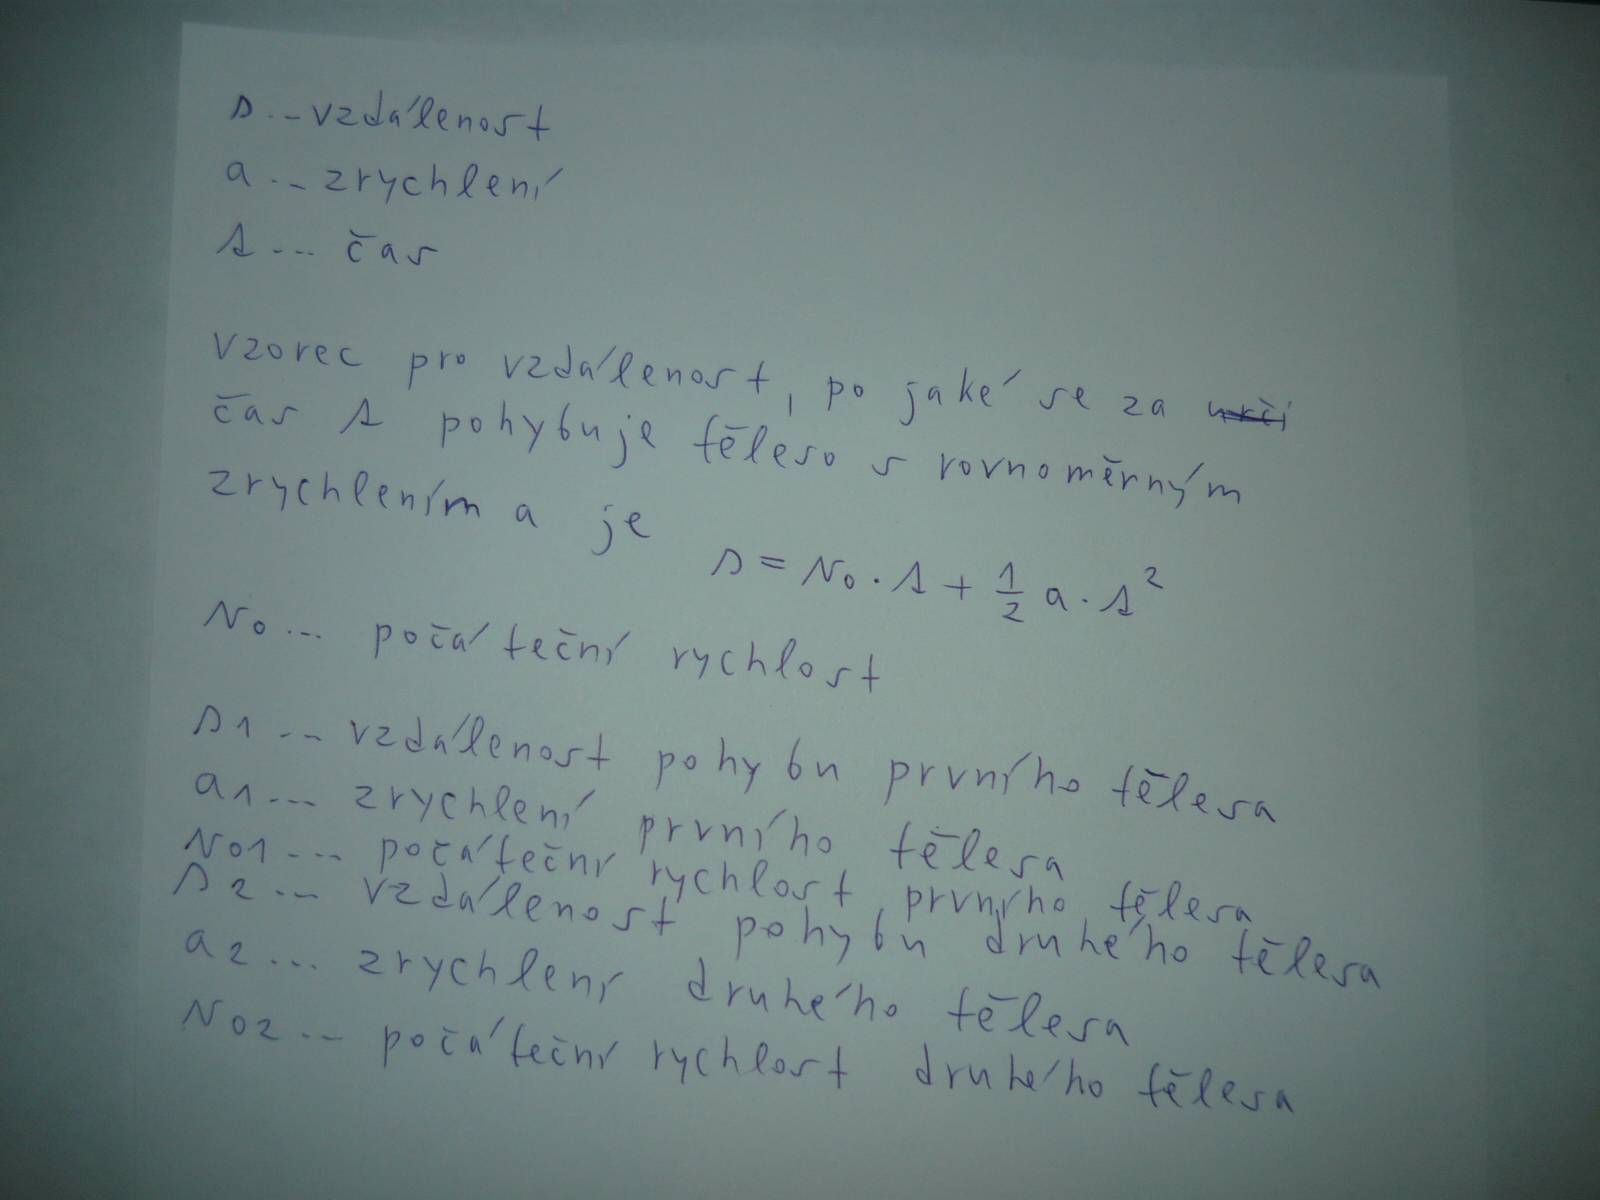 s... vzdálenost
a... zrychlení
t... čas
vzorec pro vzdálenost, po jaké se za urči
čas t pohybuje těleso s rovnoměrným
zrychlením a je
s = v₀ · t + 1/2 a · t²
v₀... počáteční rychlost
s1... vzdálenost pohybu prvního tělesa
a1... zrychlení prvního tělesa
v01... počáteční rychlost prvního tělesa
s2... vzdálenost pohybu druhého tělesa
a2... zrychlení druhého tělesa
v02... počáteční rychlost druhého tělesa